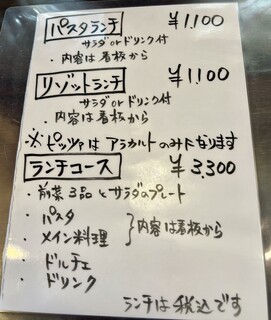 パスタランチ ¥1,100
サラダorドリンク付
・内容は看板から
リゾットランチ ¥1,100
サラダorドリンク付
・内容は看板から
※ピッツァは アラカルトのみになります
ランチコース ¥3,300
・前菜3品とサラダのプレート
・パスタ
・メイン料理 } 内容は看板から
・ドルチェ
・ドリンク
ランチは税込です